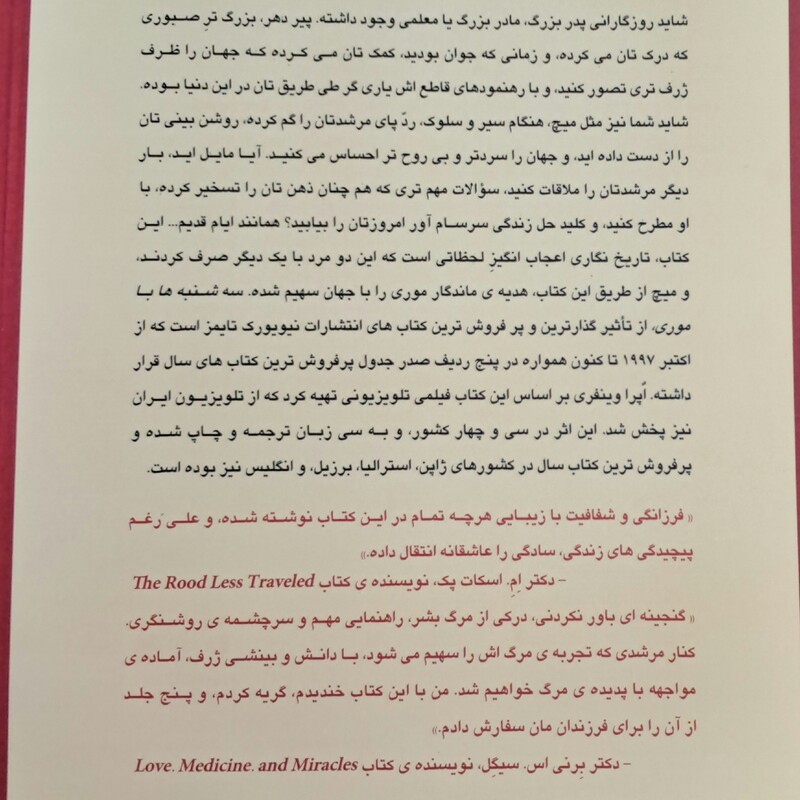 شاید روزگارانی پدر بزرگ، مادر بزرگ یا معلمی وجود داشته. پیر دهر، بزرگ ترِ صبوری
که درک تان می کرده، و زمانی که جوان بودید، کمک تان می کرده که جهان را ظرف
ژرف تری تصور کنید، و با رهنمودهای قاطع اش یاری گر طی طریق تان در این دنیا بوده.
شاید شما نیز مثل میچ، هنگام سیر و سلوک، ردّ پای مرشدتان را گم کرده، روشن بینی تان
را از دست داده اید، و جهان را سردتر و بی روح تر احساس می کنید. آیا مایل اید، بار
دیگر مرشدتان را ملاقات کنید، سؤالات مهم تری که هم چنان ذهن تان را تسخیر کرده، با
او مطرح کنید، و کلید حل زندگی سرسام آور امروزتان را بیابید؟ همانند ایام قدیم... این
کتاب، تاریخ نگاری اعجاب انگیزِ لحظاتی است که این دو مرد با یک دیگر صرف کردند،
و میچ از طریق این کتاب، هدیه ی ماندگار موری را با جهان سهیم شده. سه شنبه ها با
موری، از تأثیر گذارترین و پر فروش ترین کتاب های انتشارات نیویورک تایمز است که از
اکتبر ۱۹۹۷ تا کنون همواره در پنج ردیف صدر جدول پرفروش ترین کتاب های سال قرار
داشته. اُپرا وینفری بر اساس این کتاب فیلمی تلویزیونی تهیه کرد که از تلویزیون ایران
نیز پخش شد. این اثر در سی و چهار کشور، و به سی زبان ترجمه و چاپ شده و
پرفروش ترین کتاب سال در کشورهای ژاپن، استرالیا، برزیل، و انگلیس نیز بوده است.
« فرزانگی و شفافیت با زیبایی هرچه تمام در این کتاب نوشته شده، و علی رَغم
پیچیدگی های زندگی، سادگی را عاشقانه انتقال داده.»
– دکتر اِم. اسکات پک، نویسنده ی کتاب The Rood Less Traveled
« گنجینه ای باور نکردنی، درکی از مرگ بشر، راهنمایی مهم و سرچشمه ی روشنگری.
کنار مرشدی که تجربه ی مرگ اش را سهیم می شود، با دانش و بینشی ژرف، آماده ی
مواجهه با پدیده ی مرگ خواهیم شد. من با این کتاب خندیدم، گریه کردم، و پنج جلد
از آن را برای فرزندان مان سفارش دادم.»
– دکتر بِرنی اس. سیگِل، نویسنده ی کتاب Love. Medicine. and Miracles